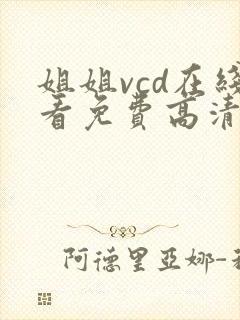 姐姐vcd在线
看免费高清
阿德里亚娜-